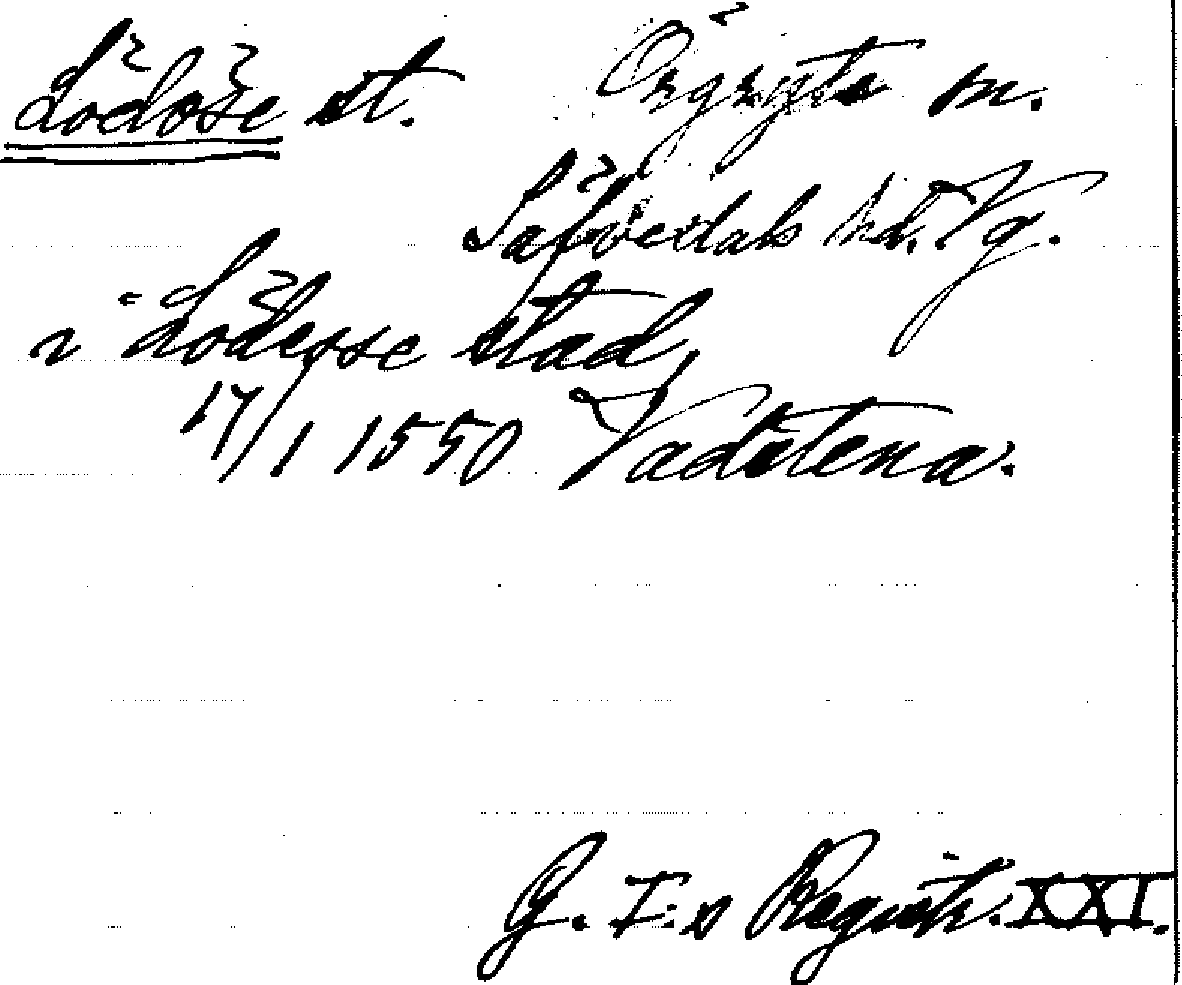 Lödöse st. Örgryte sn.
Säfvedals hd. Vg.
i Lödesse stad,
17/1 1550 Vadstena.
G. I:s Registr. XXI.